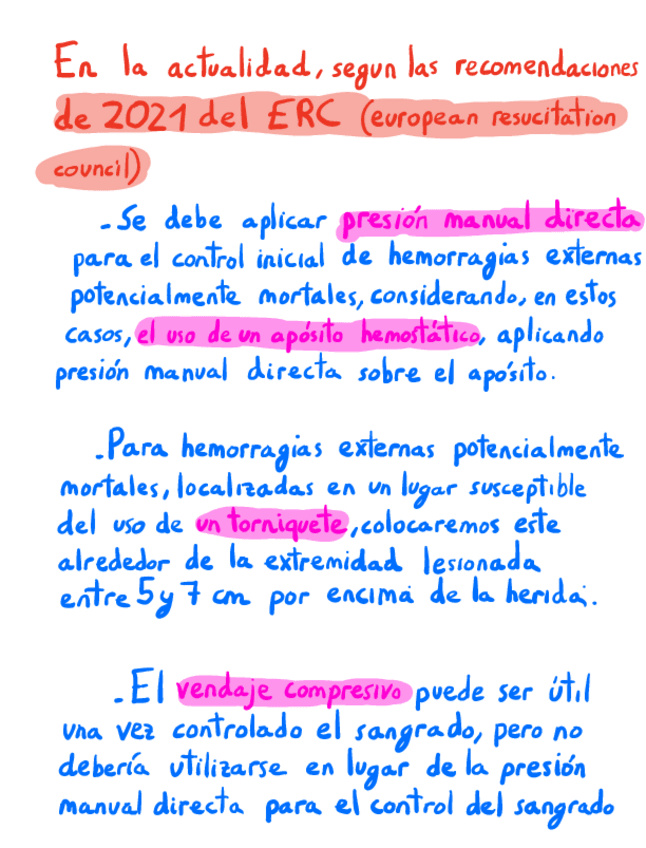 En la actualidad, segun las recomendaciones
de 2021 del ERC (european resucitation
council)
- Se debe aplicar presión manual directa
para el control inicial de hemorragias externas
potencialmente mortales, considerando, en estos
casos, el uso de un apósito hemostático, aplicando
presión manual directa sobre el apósito.
- Para hemorragias externas potencialmente
mortales, localizadas en un lugar susceptible
del uso de un torniquete, colocaremos este
alrededor de la extremidad lesionada
entre 5 y 7 cm por encima de la herida.
- El vendaje compresivo puede ser útil
una vez controlado el sangrado, pero no
debería utilizarse en lugar de la presión
manual directa para el control del sangrado